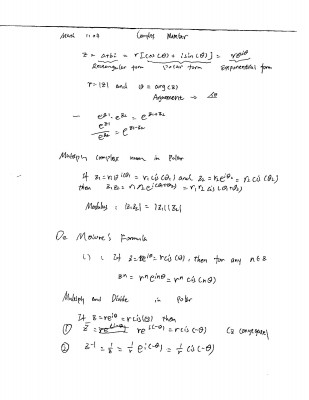 Complex Number
z = a+bi = r[cos(θ) + isin(θ)] = re^{iθ}
Rectangular form polar form Exponential form
r = |z| and θ = arg(z)
Argument
- e^{z1} · e^{z2} = e^{z1+z2}
e^{z1}/e^{z2} = e^{z1-z2}
Multiply complex num in Polar
If z1 = r1e^{iθ1} = r1 cis(θ1) and z2 = r2e^{iθ2} = r2 cis(θ2)
then z1z2 = r1r2e^{i(θ1+θ2)} = r1r2 cis(θ1+θ2)
Modulus : |z1z2| = |z1||z2|
De Moivre's Formula
If z = re^{iθ} = rcis(θ), then for any n∈Z
z^n = r^n e^{inθ} = r^n cis(nθ)
Multiply and Divide in Polar
If z = re^{iθ} = rcis(θ) then
① z̄ = re^{i(-θ)} = rcis(-θ)
② z^{-1} = 1/z = 1/r e^{i(-θ)} = 1/r cis(-θ)